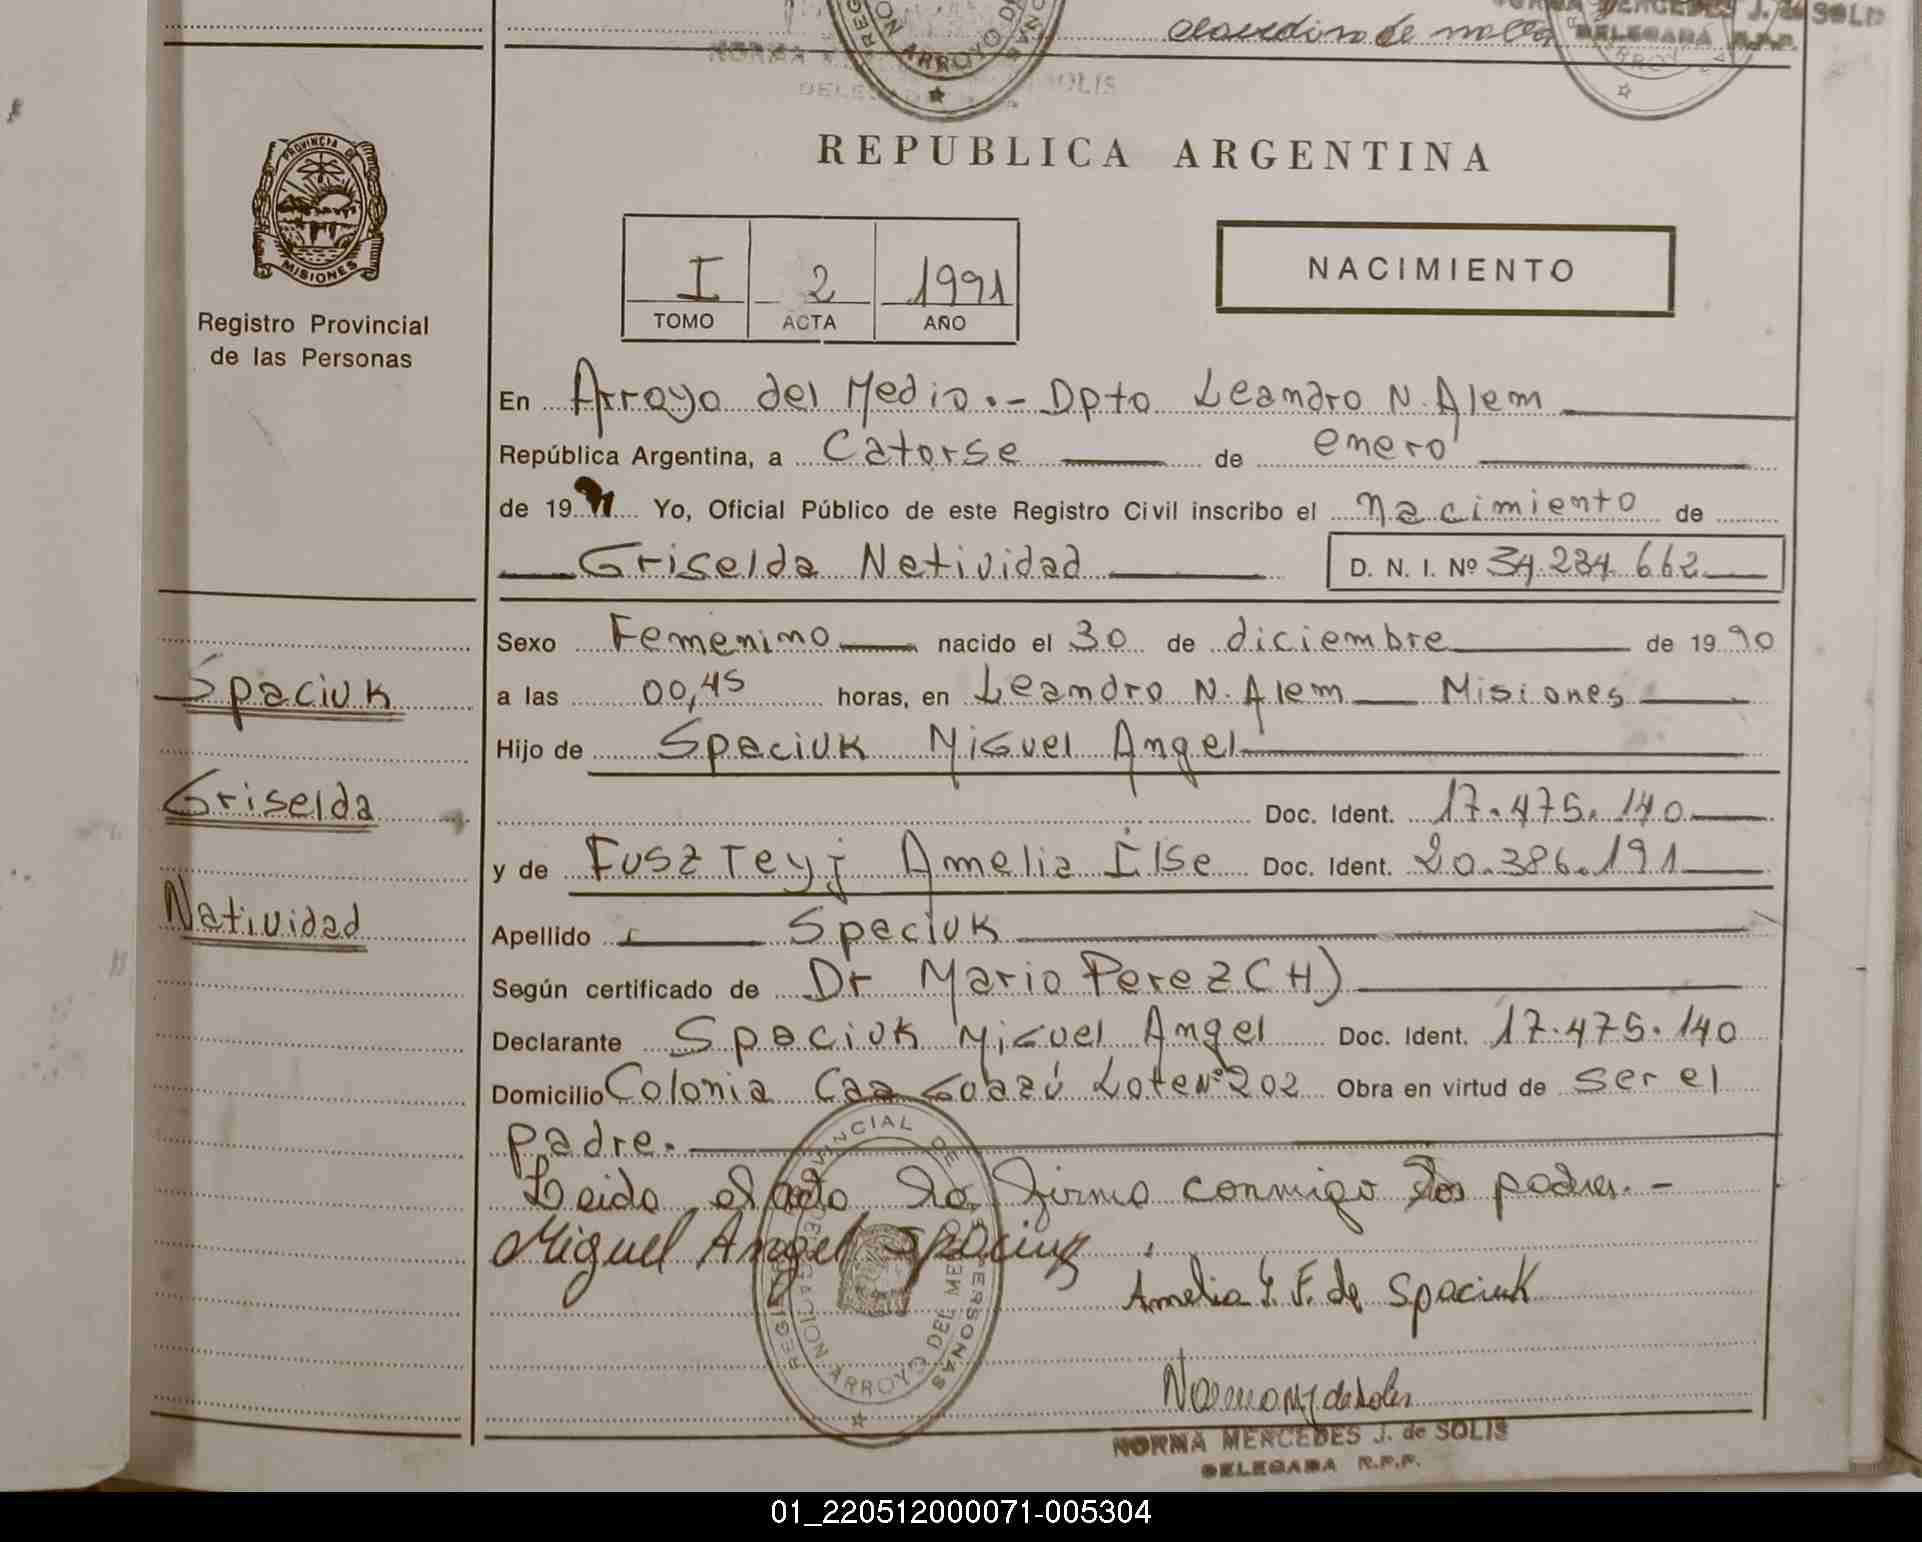 claudin de nolla
NORMA MERCEDES J. de SOLIS
DELEGADA R.P.P.
NORMA
SOLIS
ARROYO DE
PROVINCIA DE
MISIONES
Registro Provincial
de las Personas
REPUBLICA ARGENTINA
I 2 1991
TOMO ACTA AÑO
NACIMIENTO
En Arroyo del Medio.- Dpto Leandro N. Alem
República Argentina, a Catorse de enero
de 1991 Yo, Oficial Público de este Registro Civil inscribo el nacimiento de
Griselda Natividad D. N. I. Nº 34.234.662
Sexo Femenino nacido el 30 de diciembre de 1990
a las 00,45 horas, en Leandro N. Alem Misiones
Hijo de Spaciuk Miguel Angel
Doc. Ident. 17.475.140
y de Fuszteyj Amelia Ilse Doc. Ident. 20.386.191
Apellido Spaciuk
Según certificado de Dr Mario Perez (H)
Declarante Spaciuk Miguel Angel Doc. Ident. 17.475.140
Domicilio Colonia Caa Guazú Lote Nº 202 Obra en virtud de ser el
padre.
Leida el acta la firma conmigo los padres.-
Miguel Angel Spaciuk
Amelia I. F. de Spaciuk
Norma M J de Solis
NORMA MERCEDES J. de SOLIS
DELEGADA R.P.P.
REGISTRO PROVINCIAL DE LAS PERSONAS
DELEGACION ARROYO DEL MEDIO
Spaciuk
Griselda
Natividad
01_220512000071-005304